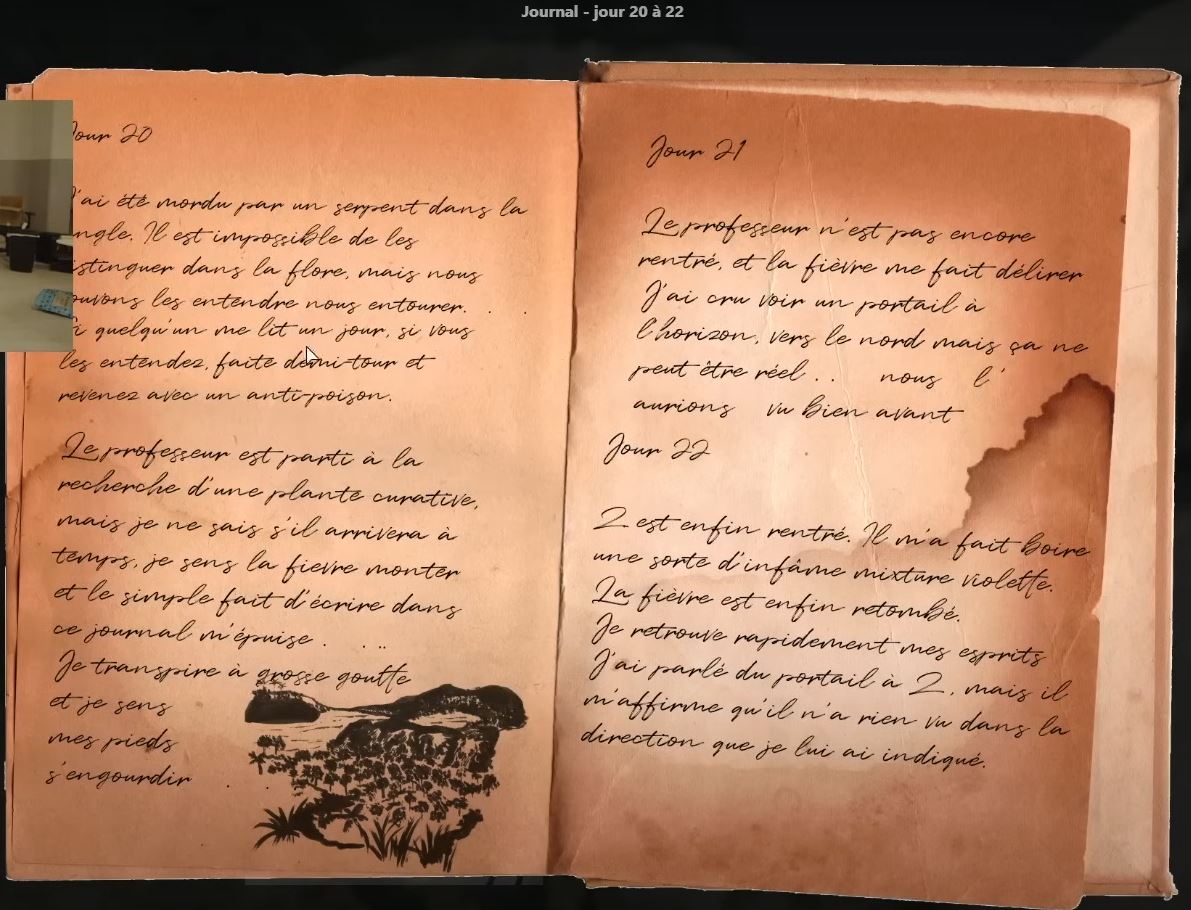 Journal - jour 20 à 22
Jour 20
J'ai été mordu par un serpent dans la
ngle. Il est impossible de les
istinguer dans la flore, mais nous
ouvons les entendre nous entourer. . .
i quelqu'un me lit un jour, si vous
les entendez, faite demi-tour et
revenez avec un anti-poison.
Le professeur est parti à la
recherche d'une plante curative,
mais je ne sais s'il arrivera à
temps, je sens la fievre monter
et le simple fait d'écrire dans
ce journal m'épuise . . ..
Je transpire à grosse goutte
et je sens
mes pieds
s'engourdir .
Jour 21
Le professeur n'est pas encore
rentré, et la fièvre me fait délirer
J'ai cru voir un portail à
l'horizon, vers le nord mais ça ne
peut être réel . . nous l'
aurions vu bien avant
Jour 22
Z est enfin rentré. Il m'a fait boire
une sorte d'infâme mixture violette.
La fièvre est enfin retombé.
Je retrouve rapidement mes esprits
J'ai parlé du portail à Z, mais il
m'affirme qu'il n'a rien vu dans la
direction que je lui ai indiqué.